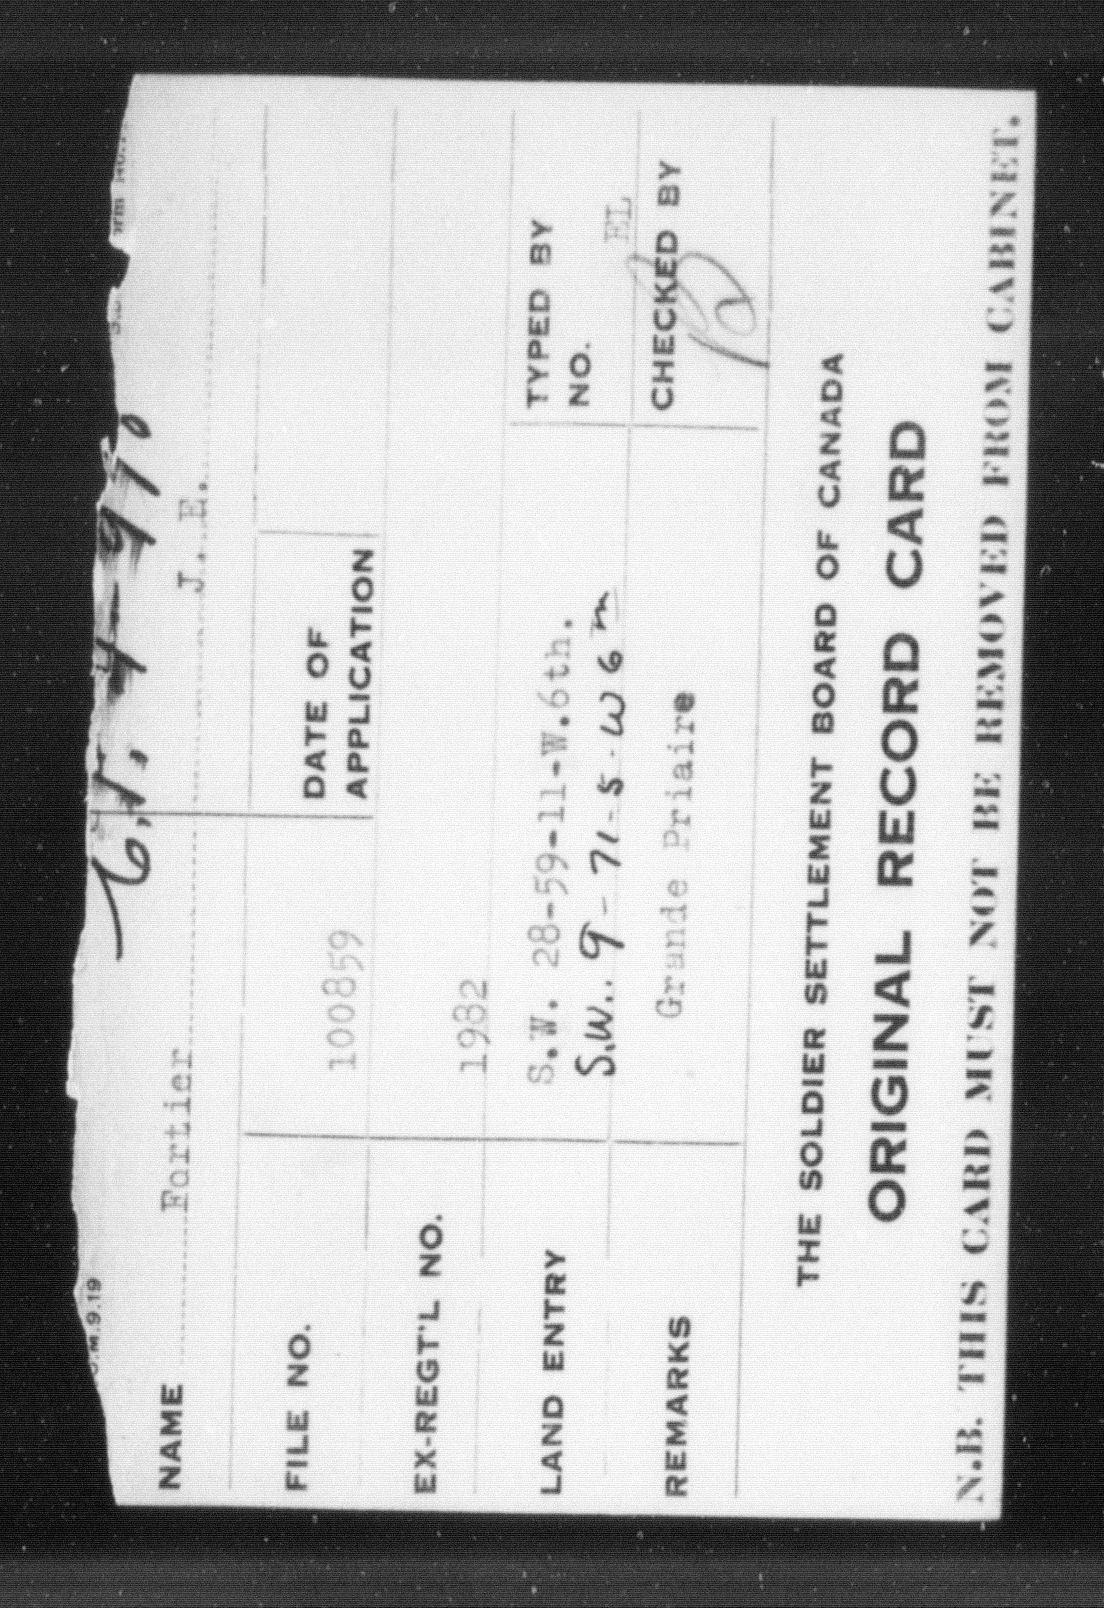 M.9.19
NAME Fortier J. E.
FILE NO. 100859 DATE OF
APPLICATION
EX-REGT'L NO. 1982
LAND ENTRY S.W. 28-59-11-W.6th. TYPED BY
S.W. 9-71-5-W6m NO. EL
REMARKS Grande Priaire CHECKED BY
THE SOLDIER SETTLEMENT BOARD OF CANADA
ORIGINAL RECORD CARD
N.B. THIS CARD MUST NOT BE REMOVED FROM CABINET.